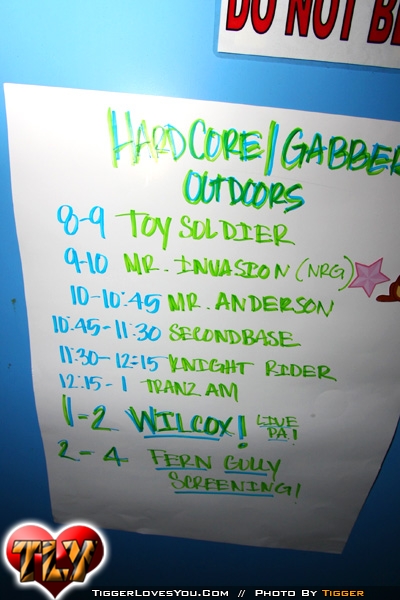 DO NOT
HARDCORE/GABBER
OUTDOORS
8-9 TOY SOLDIER
9-10 MR. INVASION (NRG)
10-10:45 MR. ANDERSON
10:45-11:30 SECONDBASE
11:30-12:15 KNIGHT RIDER
12:15-1 TRANZ AM
1-2 WILCOX! LIVE PA!
2-4 FERN GULLY
SCREENING!
TLY
TIGGERLOVESYOU.COM // PHOTO BY TIGGER